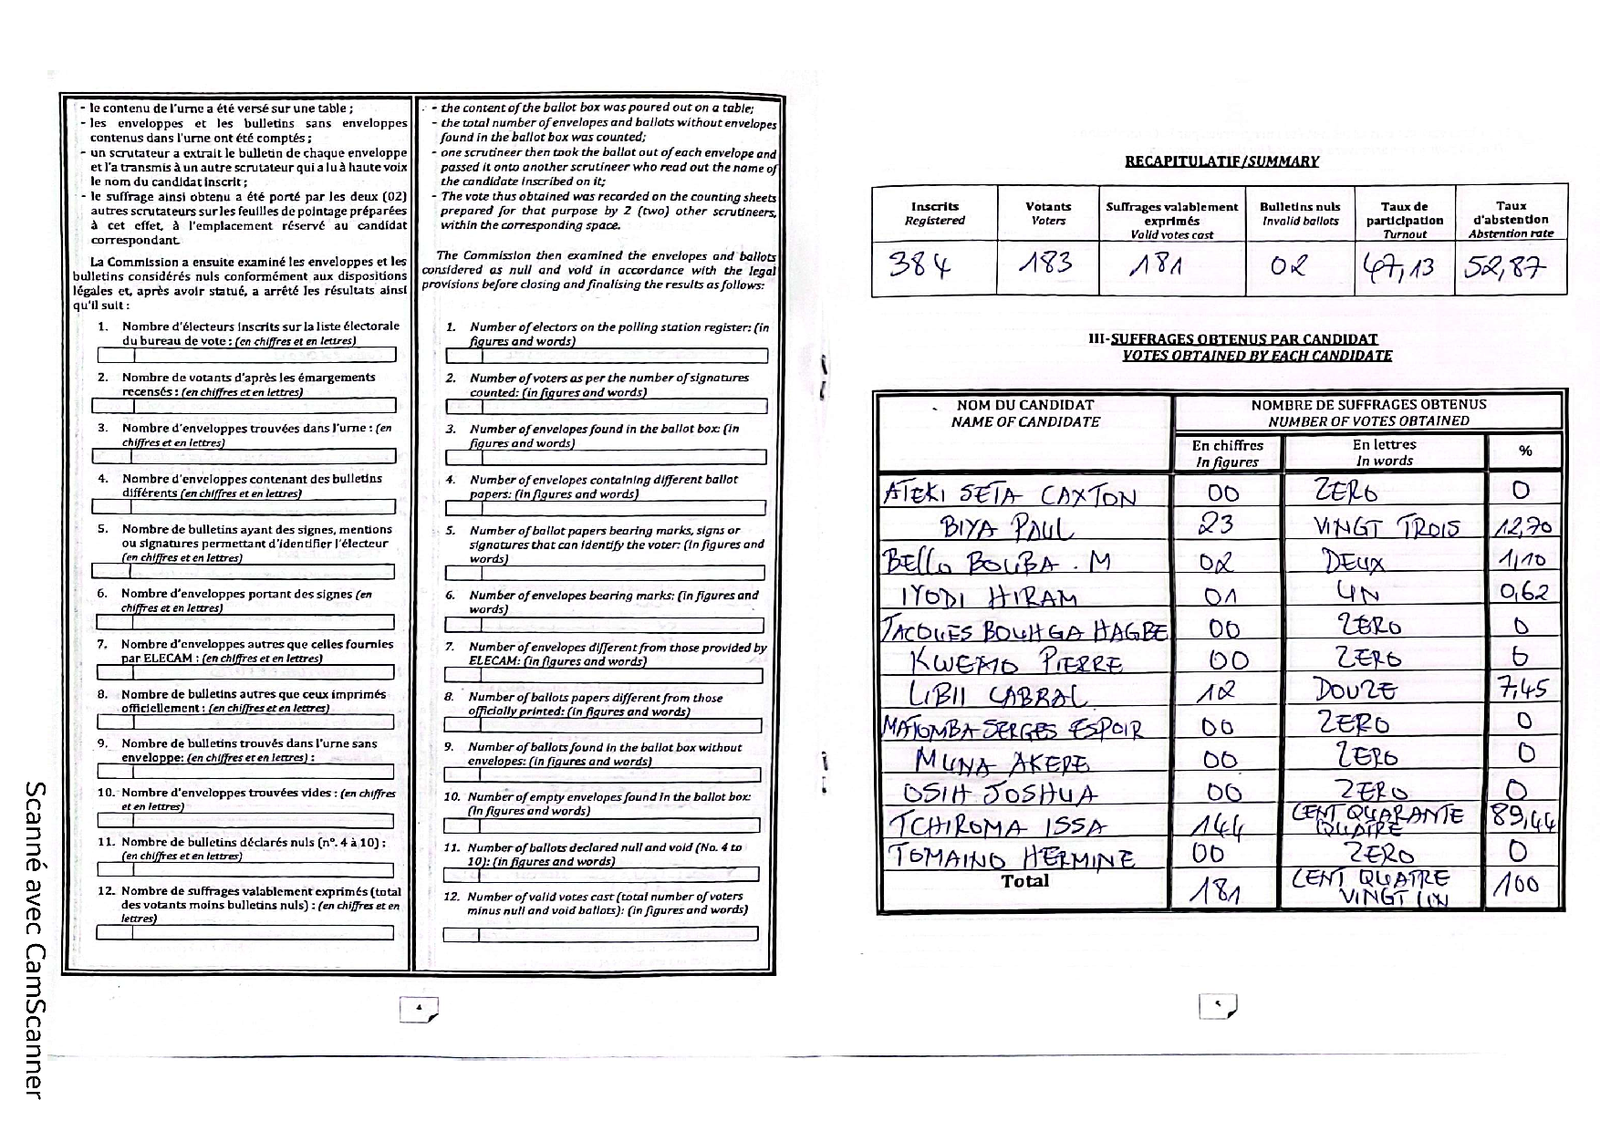 - le contenu de l'urne a été versé sur une table ;
- les enveloppes et les bulletins sans enveloppes
contenus dans l'urne ont été comptés ;
- un scrutateur a extrait le bulletin de chaque enveloppe
et l'a transmis à un autre scrutateur qui a lu à haute voix
le nom du candidat inscrit ;
- le suffrage ainsi obtenu a été porté par les deux (02)
autres scrutateurs sur les feuilles de pointage préparées
à cet effet, à l'emplacement réservé au candidat
correspondant.
La Commission a ensuite examiné les enveloppes et les
bulletins considérés nuls conformément aux dispositions
légales et, après avoir statué, a arrêté les résultats ainsi
qu'il suit :
1. Nombre d'électeurs inscrits sur la liste électorale
du bureau de vote : (en chiffres et en lettres)
2. Nombre de votants d'après les émargements
recensés : (en chiffres et en lettres)
3. Nombre d'enveloppes trouvées dans l'urne : (en
chiffres et en lettres)
4. Nombre d'enveloppes contenant des bulletins
différents (en chiffres et en lettres)
5. Nombre de bulletins ayant des signes, mentions
ou signatures permettant d'identifier l'électeur
(en chiffres et en lettres)
6. Nombre d'enveloppes portant des signes (en
chiffres et en lettres)
7. Nombre d'enveloppes autres que celles fournies
par ELECAM : (en chiffres et en lettres)
8. Nombre de bulletins autres que ceux imprimés
officiellement : (en chiffres et en lettres)
9. Nombre de bulletins trouvés dans l'urne sans
enveloppe: (en chiffres et en lettres) :
10. Nombre d'enveloppes trouvées vides : (en chiffres
et en lettres)
11. Nombre de bulletins déclarés nuls (n°. 4 à 10) :
(en chiffres et en lettres)
12. Nombre de suffrages valablement exprimés (total
des votants moins bulletins nuls) : (en chiffres et en
lettres)
- the content of the ballot box was poured out on a table;
- the total number of envelopes and ballots without envelopes
found in the ballot box was counted;
- one scrutineer then took the ballot out of each envelope and
passed it onto another scrutineer who read out the name of
the candidate inscribed on it;
- The vote thus obtained was recorded on the counting sheets
prepared for that purpose by 2 (two) other scrutineers,
within the corresponding space.
The Commission then examined the envelopes and ballots
considered as null and void in accordance with the legal
provisions before closing and finalising the results as follows:
1. Number of electors on the polling station register: (in
figures and words)
2. Number of voters as per the number of signatures
counted: (in figures and words)
3. Number of envelopes found in the ballot box: (in
figures and words)
4. Number of envelopes containing different ballot
papers: (in figures and words)
5. Number of ballot papers bearing marks, signs or
signatures that can identify the voter: (in figures and
words)
6. Number of envelopes bearing marks: (in figures and
words)
7. Number of envelopes different from those provided by
ELECAM: (in figures and words)
8. Number of ballots papers different from those
officially printed: (in figures and words)
9. Number of ballots found in the ballot box without
envelopes: (in figures and words)
10. Number of empty envelopes found in the ballot box:
(in figures and words)
11. Number of ballots declared null and void (No. 4 to
10): (in figures and words)
12. Number of valid votes cast (total number of voters
minus null and void ballots): (in figures and words)
4
RECAPITULATIF/SUMMARY
Inscrits Votants Suffrages valablement Bulletins nuls Taux de Taux
Registered Voters exprimés Invalid ballots participation d'abstention
Valid votes cast Turnout Abstention rate
384 183 181 02 47,13 52,87
III-SUFFRAGES OBTENUS PAR CANDIDAT
VOTES OBTAINED BY EACH CANDIDATE
NOM DU CANDIDAT NOMBRE DE SUFFRAGES OBTENUS
NAME OF CANDIDATE NUMBER OF VOTES OBTAINED
En chiffres En lettres %
In figures In words
ATEKI SETA CAXTON 00 ZERO 0
BIYA PAUL 23 VINGT TROIS 12,70
BELLO BOUBA . M 02 DEUX 1,10
IYODI HIRAM 01 UN 0,62
JACQUES BOUHGA HAGBE 00 ZERO 0
KWEMO PIERRE 00 ZERO 0
LIBII CABRAL 12 DOUZE 7,45
MATOMBA SERGES ESPOIR 00 ZERO 0
MUNA AKERE 00 ZERO 0
OSIH JOSHUA 00 ZERO 0
TCHIROMA ISSA 144 CENT QUARANTE QUATRE 89,44
TOMAINO HERMINE 00 ZERO 0
Total 181 CENT QUATRE VINGT UN 100
5
Scanné avec CamScanner